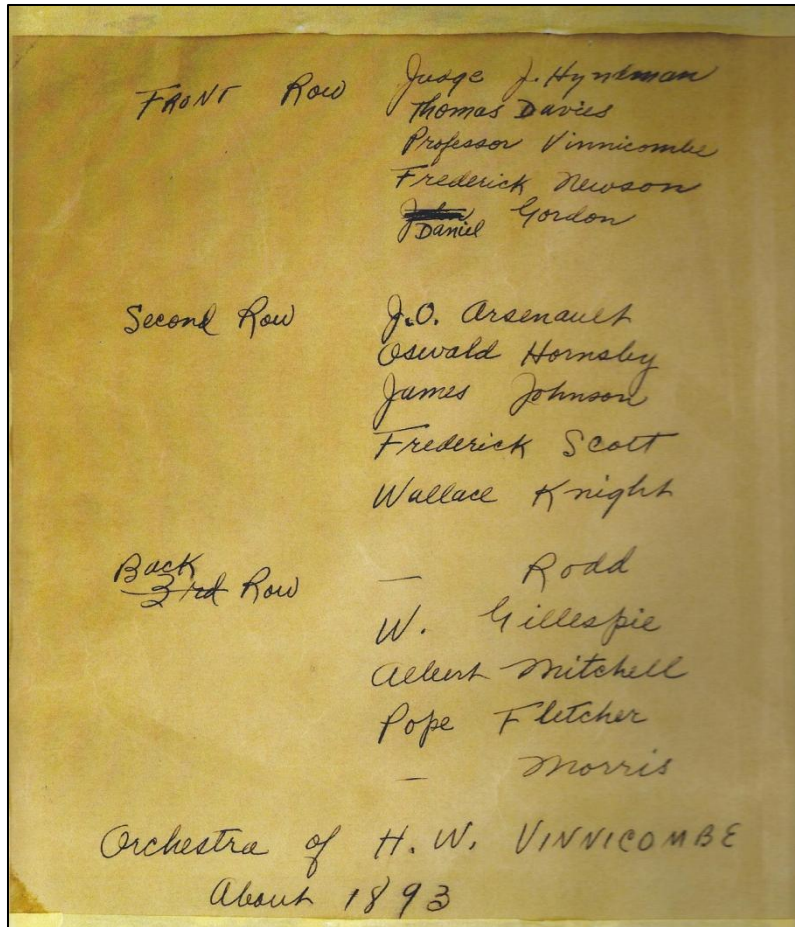 Front Row Judge J. Hyndman
Thomas Davies
Professor Vinnicombe
Frederick Newson
John Gordon
Daniel
Second Row J.O. Arsenault
Oswald Hornsby
James Johnson
Frederick Scott
Wallace Knight
Back
3rd Row — Rodd
W. Gillespie
Albert Mitchell
Pope Fletcher
— Morris
Orchestra of H. W. VINNICOMBE
About 1893